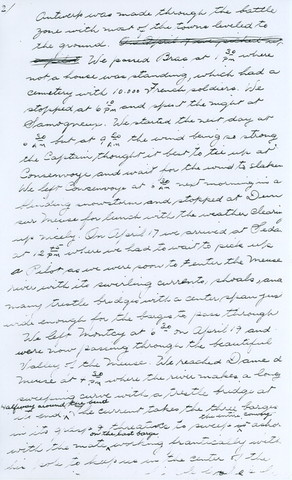 2/
Antwerp was made through the battle
zone with most of the towns leveled to
the ground.
We passed Bras at 1 30 PM where
not a house was standing, which had a
cemetery with 10.000 French soldiers. We
stopped at 6 10 PM and spent the night at
We started the next day at
6 30 AM but at 9 20 AM the wind being so strong
the Captain thought it best to tie up at
Consenvoye and wait for the wind to slaken
We left Consenvoye at 6 20 AM next morning in a
blinding snowstorm and stopped at Dun
sur Meuse for lunch with the weather clearing
up nicely. On April 17 we arrived at Sedan
at 12 PM where we had to wait to pick up
a Pilot, as we were soon to enter the Meuse
river with its swirling currents, shoals, and
many trestle bridges with a center span just
wide enough for the barges to pass through
We left at 6 30 AM on April 19 and
were now passing through the beautiful
Valley of the Meuse. We reached Dame d
Meuse at 4 30 PM where the river makes a long
sweeping curve with a trestle bridge at
halfway around this bend
the current takes the three barges
in its grasp & threatens to sweep the entire convoy ashore
with the mate on the last barge working frantically with
his pole to keep us in the center of the